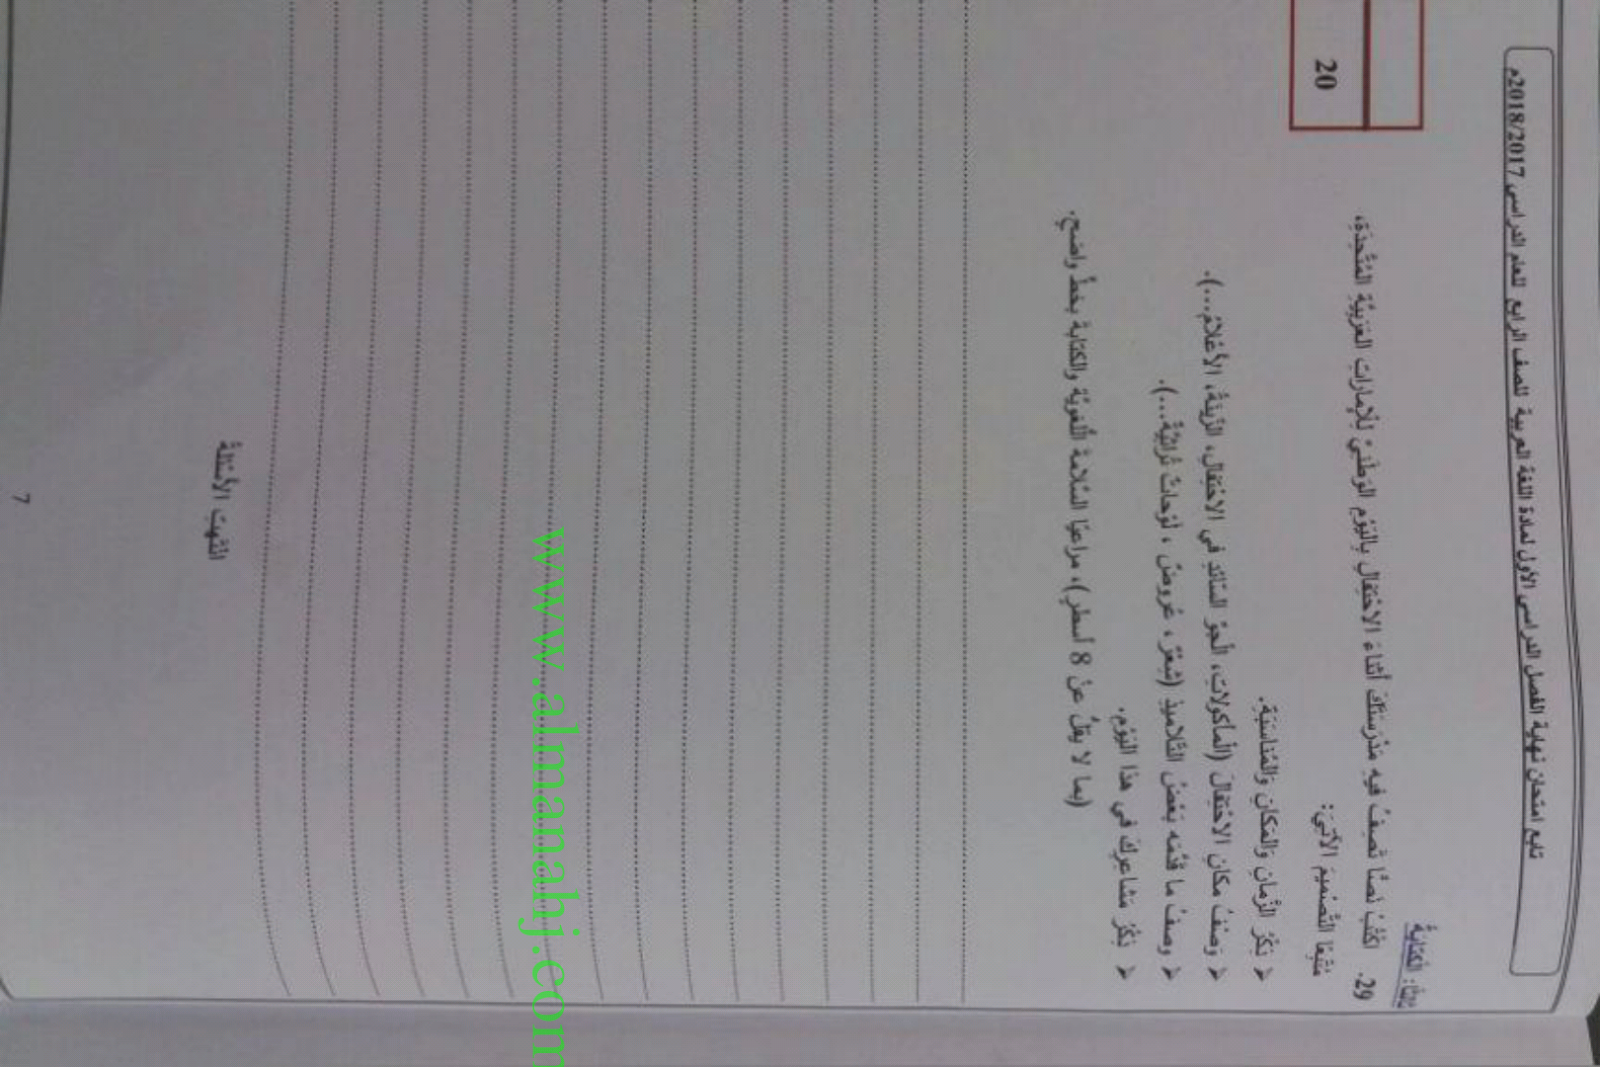 تابع امتحان نهاية الفصل الدراسي الأول لمادة اللغة العربية للصف الرابع للعام الدراسي 2018/2017م
20
ثالثًا: الكتابة
29. اكْتُبْ نَصًّا تَصِفُ فيهِ مَدْرَسَتَكَ أَثْناءَ الاحْتِفالِ بِالْيَوْمِ الوَطَنِيِّ لِلْإماراتِ العَرَبِيَّةِ المُتَّحِدَةِ،
مُتَّبِعًا التَّصْميمَ الآتِيَ:
➢ ذِكْرُ الزَّمانِ وَالمَكانِ وَالمُناسَبَةِ.
➢ وَصْفُ مَكانِ الاحْتِفالِ (الْمَأكولاتِ، الْجَوِّ السّائِدِ في الاحْتِفالِ، الزّينَةُ، الأَعْلامُ...).
➢ وصفُ ما قَدَّمَه بَعْضُ التَّلاميذِ (شِعْرٌ، عُروضٌ، لَوْحاتٌ تُراثِيَّةٌ...).
➢ ذِكْرُ مَشاعِرِكَ في هذا اليَوْمِ.
(بما لا يقلُّ عنْ 8 أسطرٍ)، مراعيًا السّلامةَ اللّغويّةَ والكتابةَ بخطٍّ واضحٍ.
انْتَهَتِ الأَسْئِلَةُ
7
www.almanahj.com